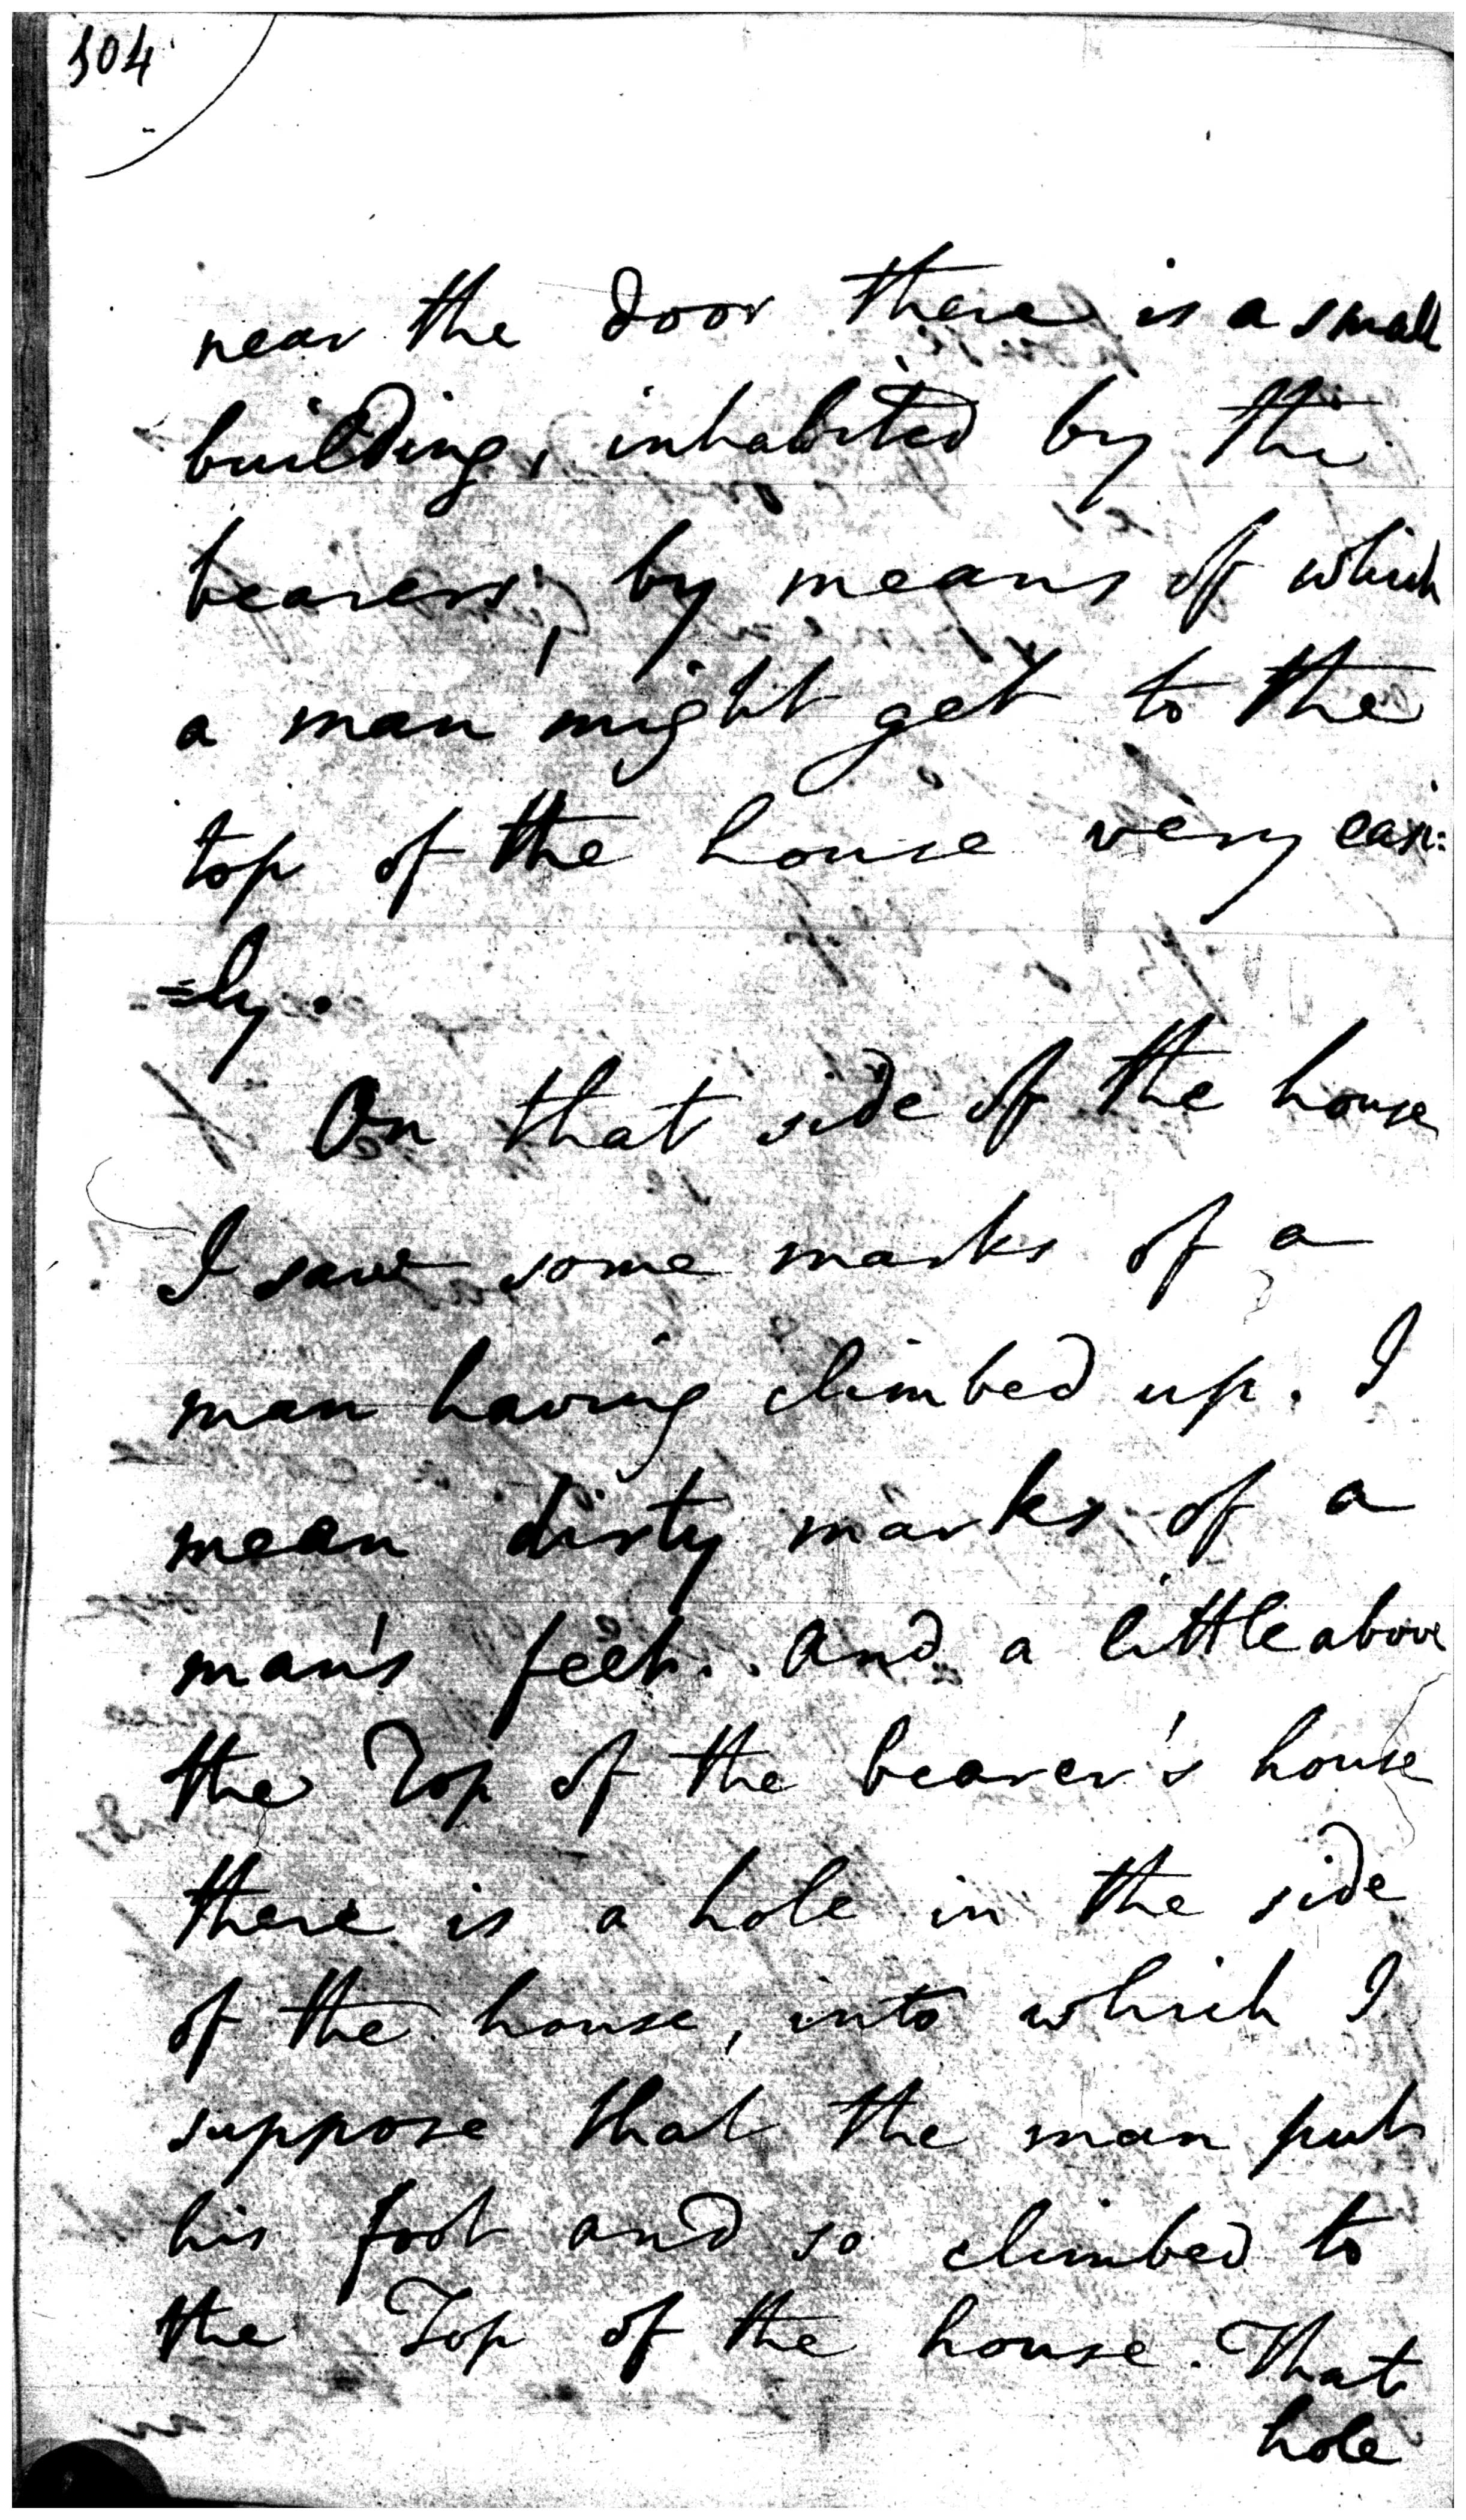 104
near the door there is a small
building, inhabited by the
bearers, by means of which
a man might get to the
top of the house very easi:
=ly.
On that side of the house
I saw some marks of a
man having climbed up. I
mean dirty marks of a
man's feet. And a little above
the Top of the bearer's house
there is a hole in the side
of the house, into which I
suppose that the man put
his foot and so climbed to
the Top of the house. That
hole